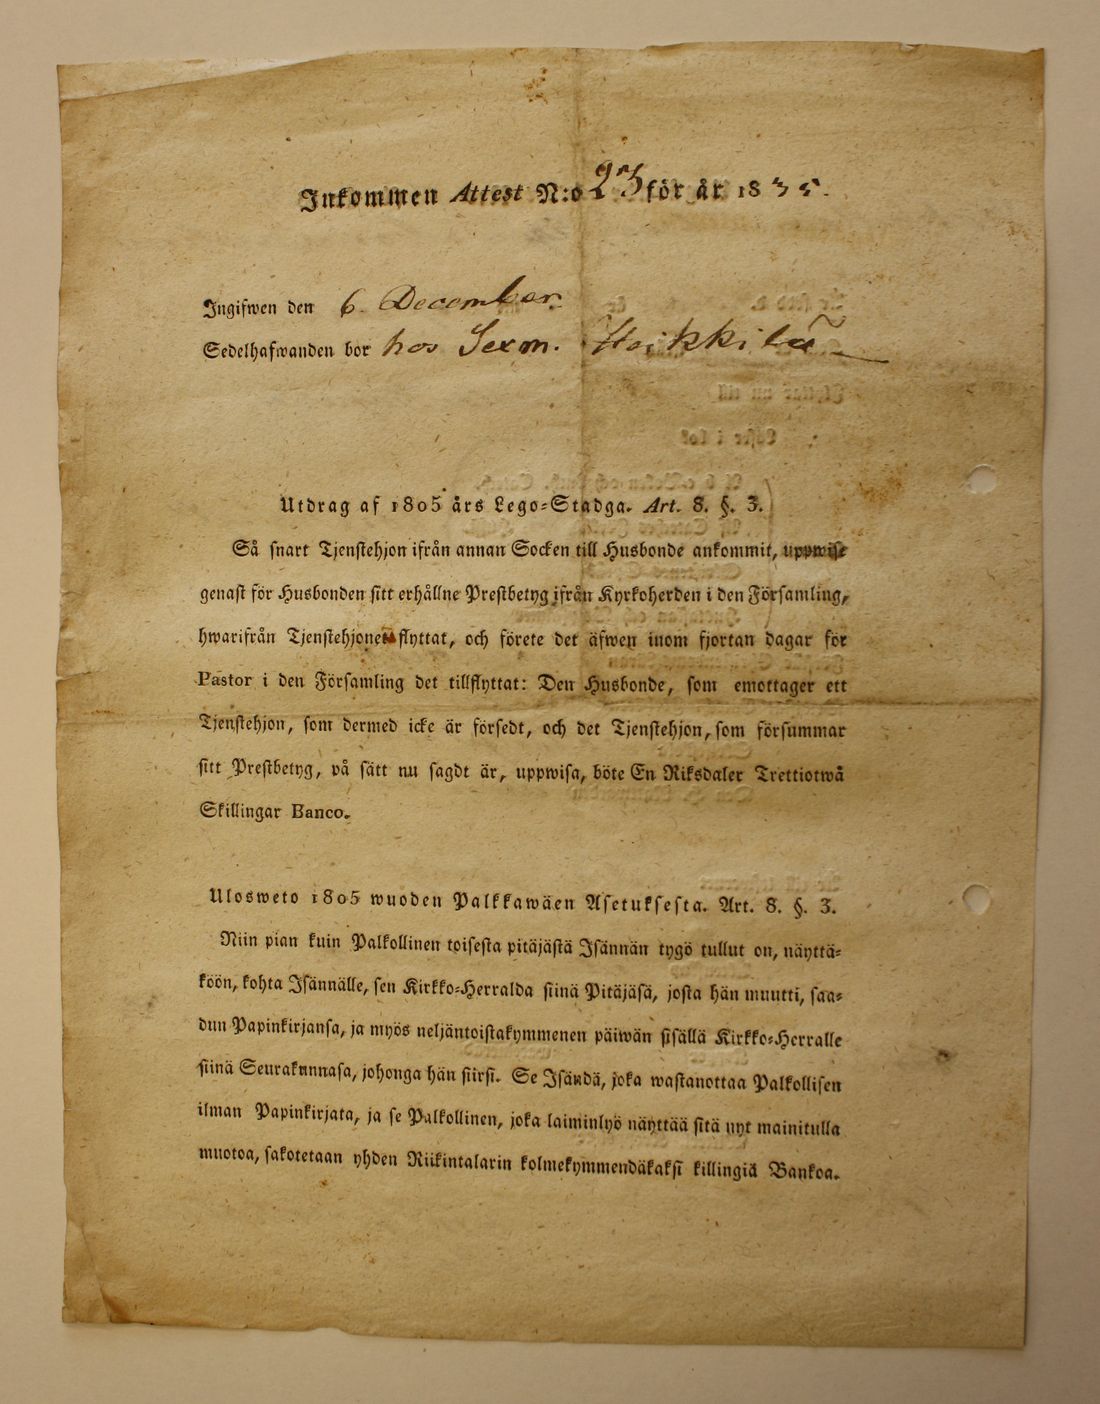 Inkommen Attest N:o 23 för år 1835.
Ingifwen den 6 December
Sedelhafwanden bor hos Sexm. Heikkilä
Utdrag af 1805 års Lego=Stadga. Art. 8. §. 3.
Så snart Tjenstehjon ifrån annan Socken till Husbonde ankommit, uppwise
genast för Husbonden sitt erhållne Prestbetyg ifrån Kyrkoherden i den Församling,
hwarifrån Tjenstehjonet flyttat, och förete det äfwen inom fjortan dagar för
Pastor i den Församling det tillflyttat: Den Husbonde, som emottager ett
Tjenstehjon, som dermed icke är försedt, och det Tjenstehjon, som försummar
sitt Prestbetyg, på sätt nu sagdt är, uppwisa, böte En Riksdaler Trettiotwå
Skillingar Banco.
Ulosweto 1805 wuoden Palkkawäen Asetuksesta. Art. 8. §. 3.
Niin pian kuin Palkollinen toisesta pitäjästä Isännän tygö tullut on, näyttä=
köön, kohta Isännälle, sen Kirkko=Herralda siinä Pitäjäsä, josta hän muutti, saa=
dun Papinkirjansa, ja myös neljäntoistakymmenen päiwän sisällä Kirkko=Herralle
siinä Seurakunnasa, johonga hän siirsi. Se Isändä, joka wastanottaa Palkollisen
ilman Papinkirjata, ja se Palkollinen, joka laiminlyö näyttää sitä nyt mainitulla
muotoa, sakotetaan yhden Riikintalarin kolmekymmendäkaksi killingiä Bankoa.